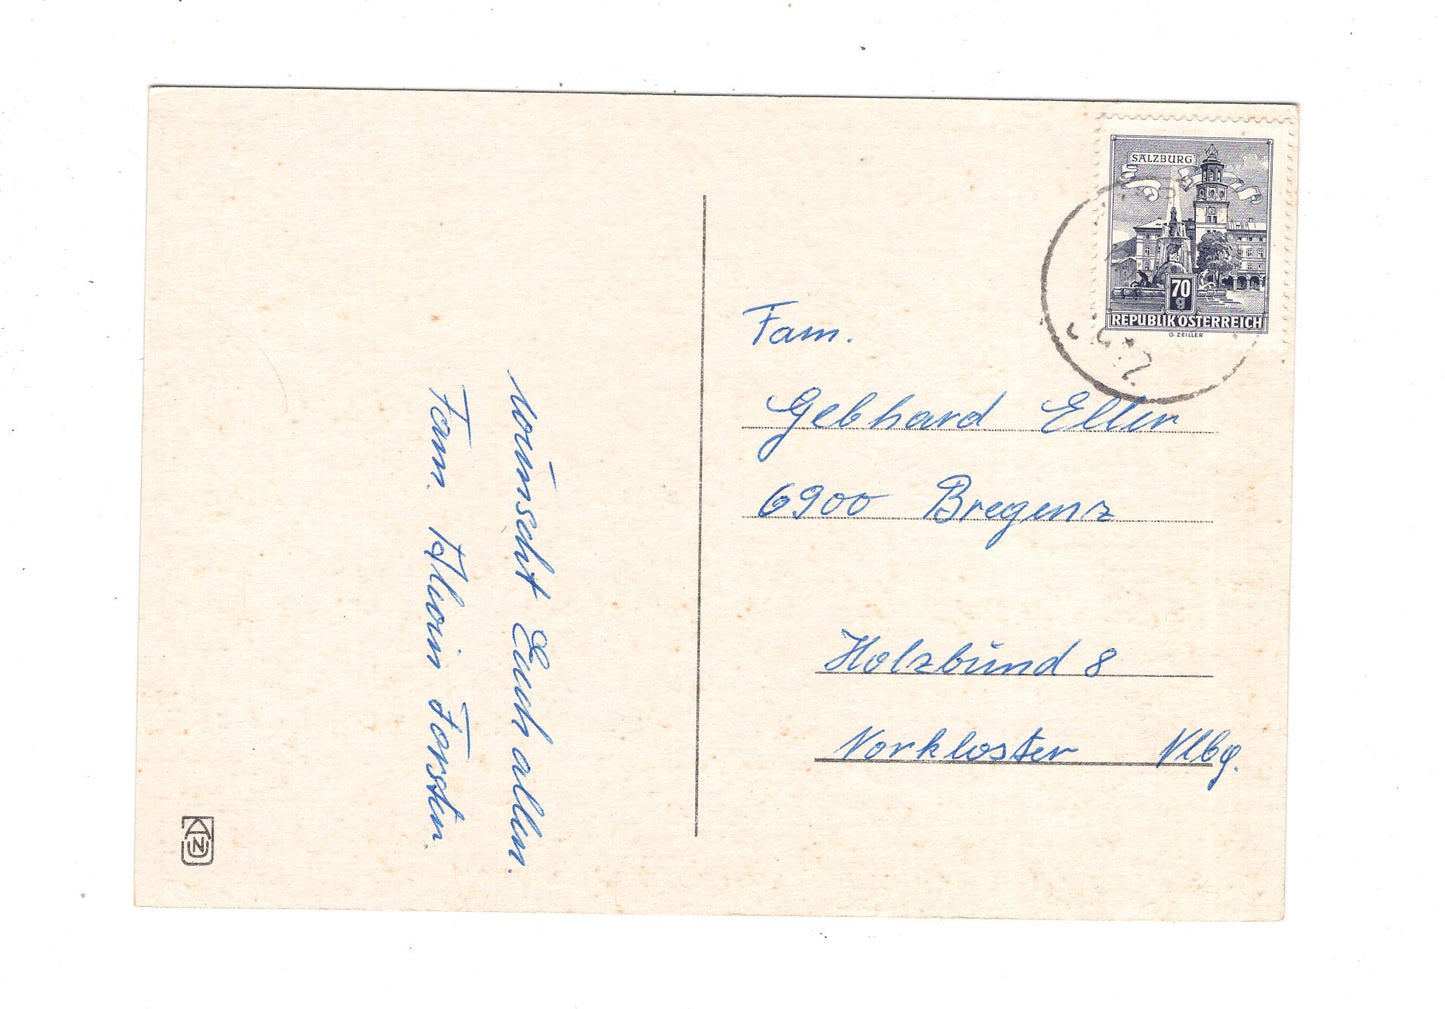 wünscht Euch allen.
Fam. Alwin Forster.
SALZBURG
70
g
REPUBLIK ÖSTERREICH
O. ZEILLER
Fam.
Gebhard Eller
6900 Bregenz
Holzbünd 8
Vorkloster Vlbg.
AUN